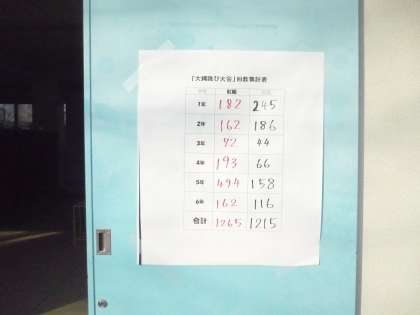 「大縄跳び大会」回数集計表
紅組
1年 182 245
2年 162 186
3年 72 44
4年 193 66
5年 494 158
6年 162 116
合計 1265 1215